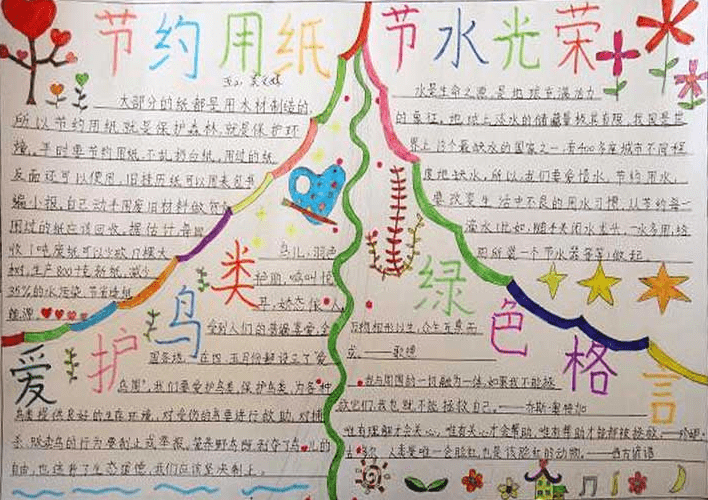 节约用纸
大部分的纸都是用木材制造的,
所以节约用纸就是保护森林,就是保护环
境。平时要节约用纸,不乱扔白纸,用过的纸
反面还可以使用,旧挂历纸可以用来包书
编小报,自己动手用废旧材料做贺卡
用过的纸应该回收。据估计,每回
收1吨废纸可以少砍
树,生产800千克新纸,减少
35%的水污染,节省
能源。
节水光荣
水是生命之源,是地球充满活力
的象征。地球上淡水的储藏量极其有限,我国是世
界上13个最缺水的国家之一,有400多座城市不同程
度地缺水,所以,我们要爱惜水,节约用水,
要改变生活中不良的用水习惯,从节约每一
滴水(比如,随手关闭水龙头,一水多用,给
厕所装一个节水器等等)做起。
爱护鸟类
鸟儿,羽色
艳丽,鸣叫悦
耳,姿态
受到人们的普遍喜爱,全
国各地,在四、五月份都设立了"爱
鸟周",我们要爱护鸟类,保护鸟类,为各种
鸟类提供良好的生存环境,对受伤的鸟要进行救助,对捕
杀、贩卖鸟的行为要制止或举报。笼养野鸟既剥夺了鸟儿的
自由,也违背了生态道德,我们应该坚决制止。
绿色格言
万物相形以生,众生互惠而
成。——歌德
我与周围的一切融为一体,如果我不能拯
救它们,我也就不能拯救自己。——
唯有理解才会关心,唯有关心才会帮助,唯有帮助才能都被拯救。——珍妮·
古多尔 人类是唯一会脸红,也是该脸红的动物。——西方谚语